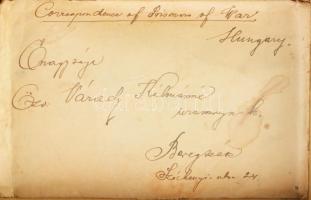 Correspondence of Prisoners of War
Hungary.
Őnagysága
Özv. Várady Kálmánné
úrasszony
Beregszász
Széchenyi-utca 24.